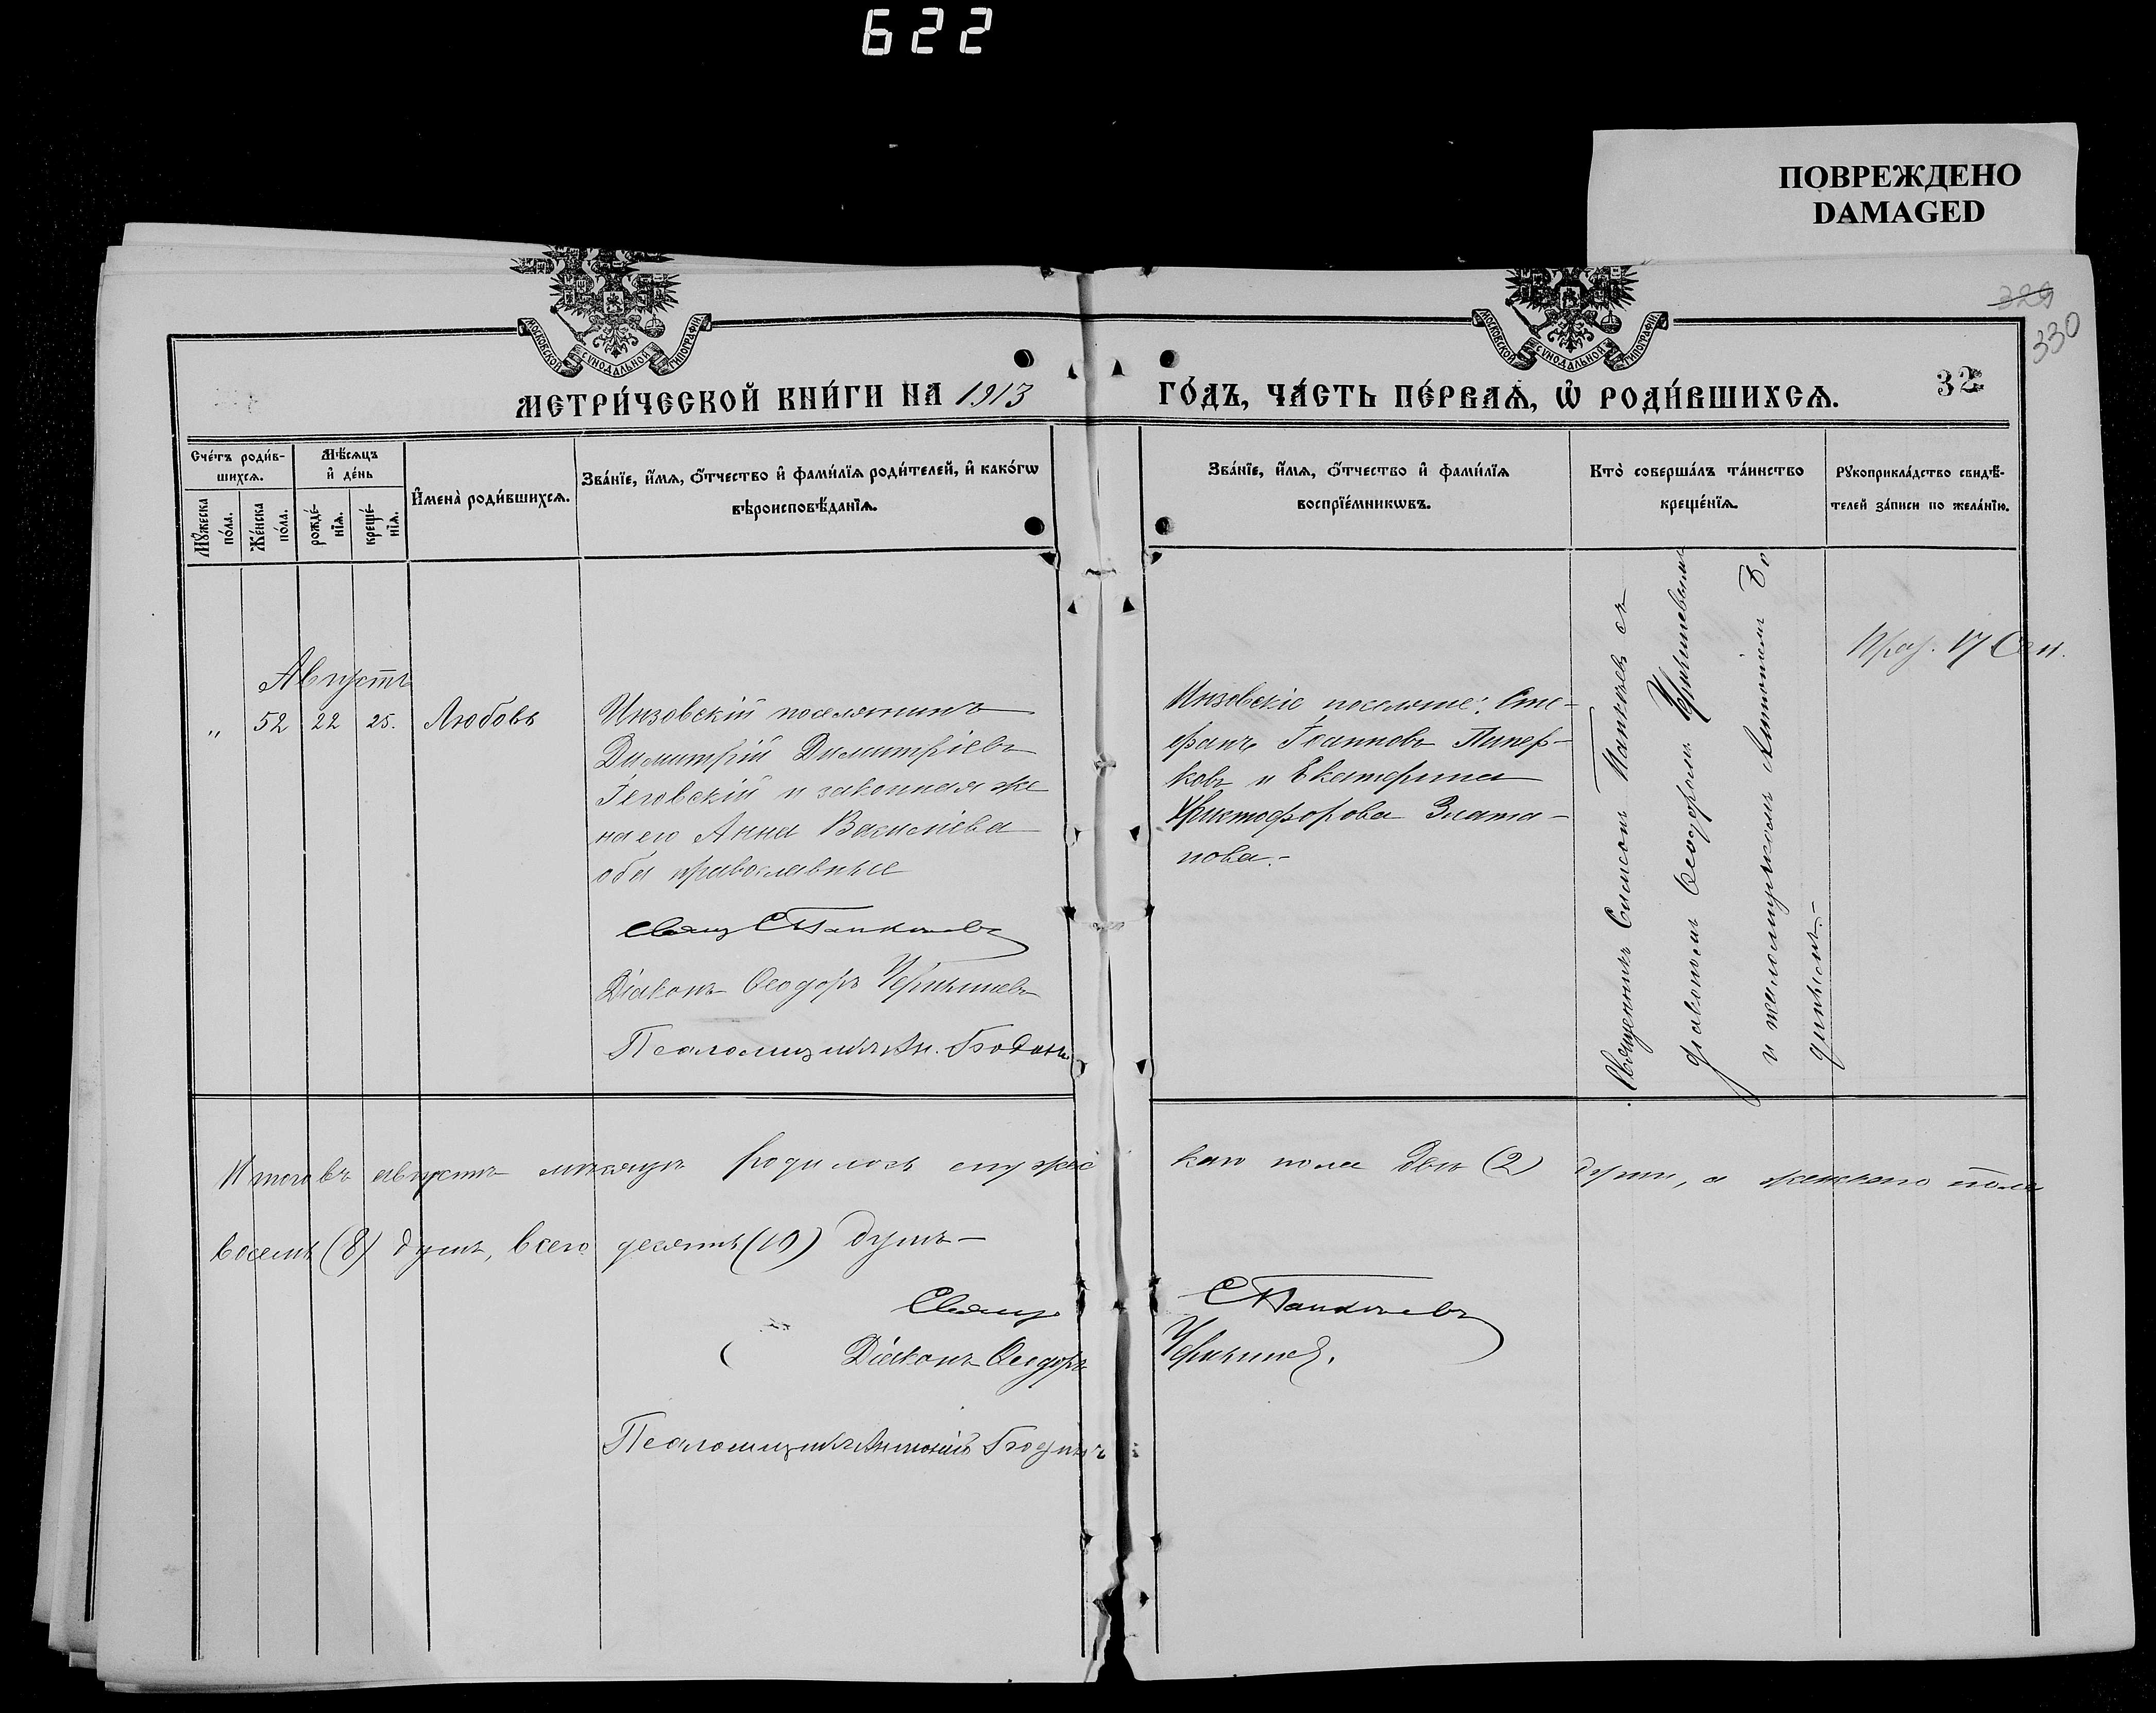 622
ПОВРЕЖДЕНО
DAMAGED
МОСКОВСКОЙ СѴНОДАЛЬНОЙ ТИПОГРАФІИ
МОСКОВСКОЙ СѴНОДАЛЬНОЙ ТИПОГРАФІИ
329
330
МЕТРИ́ЧЕСКОЙ КНИ́ГИ НА 1913 ГО́ДЪ, ЧА́СТЬ ПЕ́РВАѦ, Ѡ҆ РОДИ́ВШИХСѦ.
32
Сче́тъ роди́в-
шихсѧ.
Мꙋ́жеска
по́ла.
Же́нска
по́ла.
Мѣ́сѧцъ
и҆ де́нь
рожде́-
нїѧ.
креще́-
нїѧ.
И҆мена̀ роди́вшихсѧ.
Зва́нїе, и҆́мѧ, ѻ҆́тчество и҆ фами́лїѧ роди́телей, и҆ како́гѡ
вѣроисповѣ́данїѧ.
Зва́нїе, и҆́мѧ, ѻ҆́тчество и҆ фами́лїѧ
воспрїе́мникѡвъ.
Кто̀ соверша́лъ та́инство
креще́нїѧ.
Рꙋкоприкла́дство свидѣ́-
телей за́писи по жела́нїю.
Августъ
" 52 22 25. Любовь
Инзовскій поселянинъ
Димитрій Димитріевъ
Геговскій и законная же
на его Анна Василіева
оба православные
Свящ. С Папкчевъ
Діаконъ Ѳеодоръ
Псаломщикъ Ан.
Инзовскіе поселяне: Сте-
фанъ Іоанновъ Пипер-
ковъ и Екатерина
Христофорова Злата-
нова.-
Священникъ Симеонъ съ
діакономъ Ѳеодоромъ
и псаломщикомъ Антоніемъ Бо
дынъкомъ.-
17 Сен.
Итого въ августѣ мѣсяцѣ родилось мужес
каго пола двѣ (2) души, а женскаго пола
восемь (8) душъ, всего десять (10) душъ-
Свящ. С
Діаконъ Ѳеодоръ
Псаломщикъ Антоній